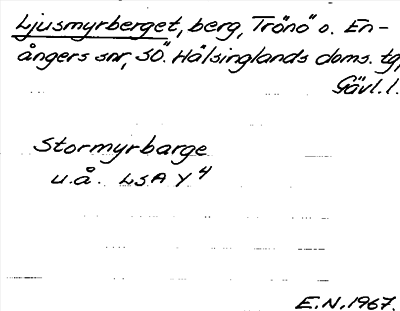 Ljusmyrberget, berg, Trönö o. En-
ångers snr, SÖ. Hälsinglands doms. tg,
Gävl. l.
Stormyrbarge
u.å. LSA Y 4
E.N. 1967.